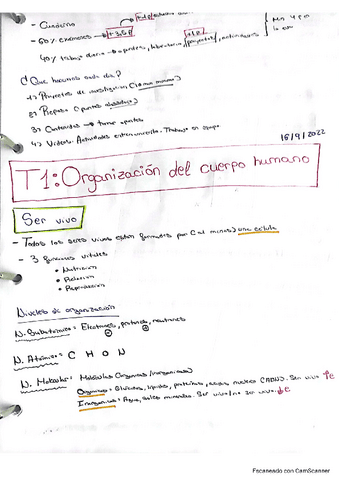 - Cuaderno
- 60% exámenes → +3,5
40% trabajo diario → apuntes, laboratorio, proyectos, actividades
¿Qué hacemos cada día?
1) Proyectos de investigación
2) Repaso
3) Contenidos → tomar apuntes
4) Vídeos. Actividades. Trabajo en grupo
15/9/2022
T1: Organización del cuerpo humano
Ser vivo
- Todos los seres vivos están formados por (al menos) una célula
- 3 funciones vitales
• Nutrición
• Relación
• Reproducción
Niveles de organización
N. Subatómico = Electrones, protones, neutrones
N. Atómico = C H O N
N. Molecular = Moléculas (orgánicas/inorgánicas)
Orgánicas = Glúcidos, lípidos, proteínas, ácidos nucleicos (ADN). Ser vivo
Inorgánicas = Agua, sales minerales. Ser vivo/no ser vivo.
Escaneado con CamScanner